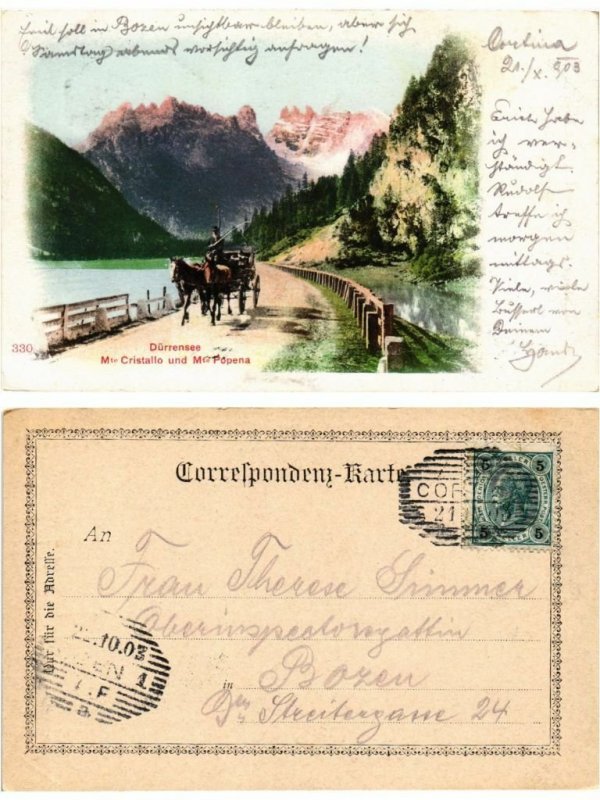 soll in Bozen unsichtbar bleiben, aber sich
Samstag abends vorsichtig anfragen!
Cortina
21./X. 903
habe
ich ver-
ständigt.
Rudolf
treffe ich
morgen
mittags.
Viele, viele
Busserl von
Deinem
330
Dürrensee
Mte Cristallo und Mte Popena
Correspondenz-Karte
5 5
COR
21
5 5
An
Frau Therese Simmer
Oberinspectorsgattin
in Bozen
Streitergasse 24
Nur für die Adresse.
10.03
ZEN 1
7.F
a